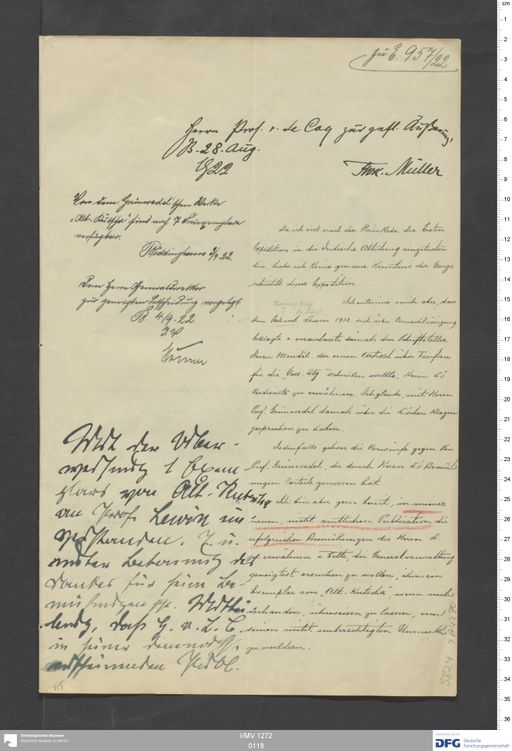 zu E. 957/22
Herrn Prof. v. Le Coq zur gefl. Äußerung,
B. 28. Aug.
1922
F.W.K. Müller
Von dem Grünwedel'schen Werke
„Alt-Kutscha" sind noch 7 Freiexemplare
verfügbar.
3/9.22.
Dem Herrn Generaldirektor
zur geneigten Entscheidung vorgelegt.
B. 4/9.22.
Da ich erst nach der Heimkehr der Ersten
Expedition in die Indische Abteilung eingetreten
bin, habe ich keine genaue Kenntniss der Vorge-
schichte dieser Expedition.
Ich entsinne mich aber, dass
1912 sich über Vernachlässigung
beklagte u. veranlasste damals den Schriftsteller
Herrn Mendel, der einen Artikel über Turfan
für die „Voss. Ztg" schreiben wollte, Herrn L's
Verdienste zu erwähnen. Ich glaube, mit Herrn
Prof. Grünwedel damals über die L'schen Klagen
gesprochen zu haben.
Jedenfalls gehen die Vorwürfe gegen Herrn
Prof. Grünwedel, der durch Herrn L's Bemüh-
ungen Vorteile genossen hat.
Ich bin aber gern bereit, in meiner
neuen, nicht amtlichen Publication die
erfolgreichen Bemühungen des Herrn L.
zu erwähnen u. bitte, die Generalverwaltung
geneigtest ersuchen zu wollen, ihm ein
Exemplar von „Alt-Kutscha", wenn noch
vorhanden, überweisen zu lassen, um
seinen nicht unberechtigten Unmut
zu mildern.
Mit der Über-
weisung 1 Exem-
plars von Alt-Kutscha
an Prof. Lewin ein-
verstanden. Z. u.
unter Betonung des
Dankes für seine Be-
mühungen pp. Mittei-
lung, daß H. v. L. C.
in seiner demnächst
erscheinenden Publ.
115
I/MV 1272
0118
Ethnologisches Museum
Staatliche Museen zu Berlin
DFG Deutsche
Forschungsgemeinschaft